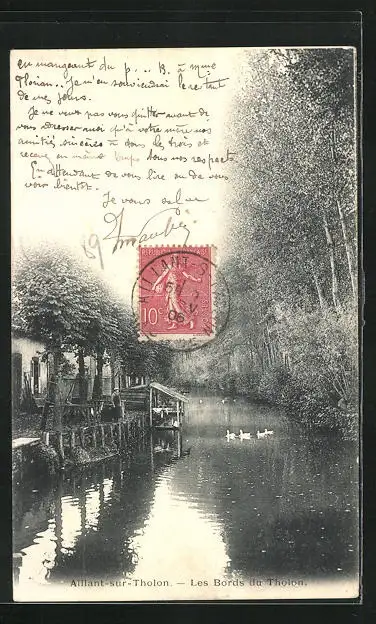 en mangeant du p... B. à mme
Florian.. Je m'en souviendrai le restant
de mes jours.
Je ne veux pas vous quitter avant de
vous adresser ainsi qu'à votre mère nos
amitiés sincères à dans les trois et
recevez en même temps tous nos respects
En attendant de vous lire ou de vous
voir bientôt.
Je vous salue
REPUBLIQUE FRANÇAISE
10c
AILLANT-S
06
Aillant-sur-Tholon. — Les Bords du Tholon.